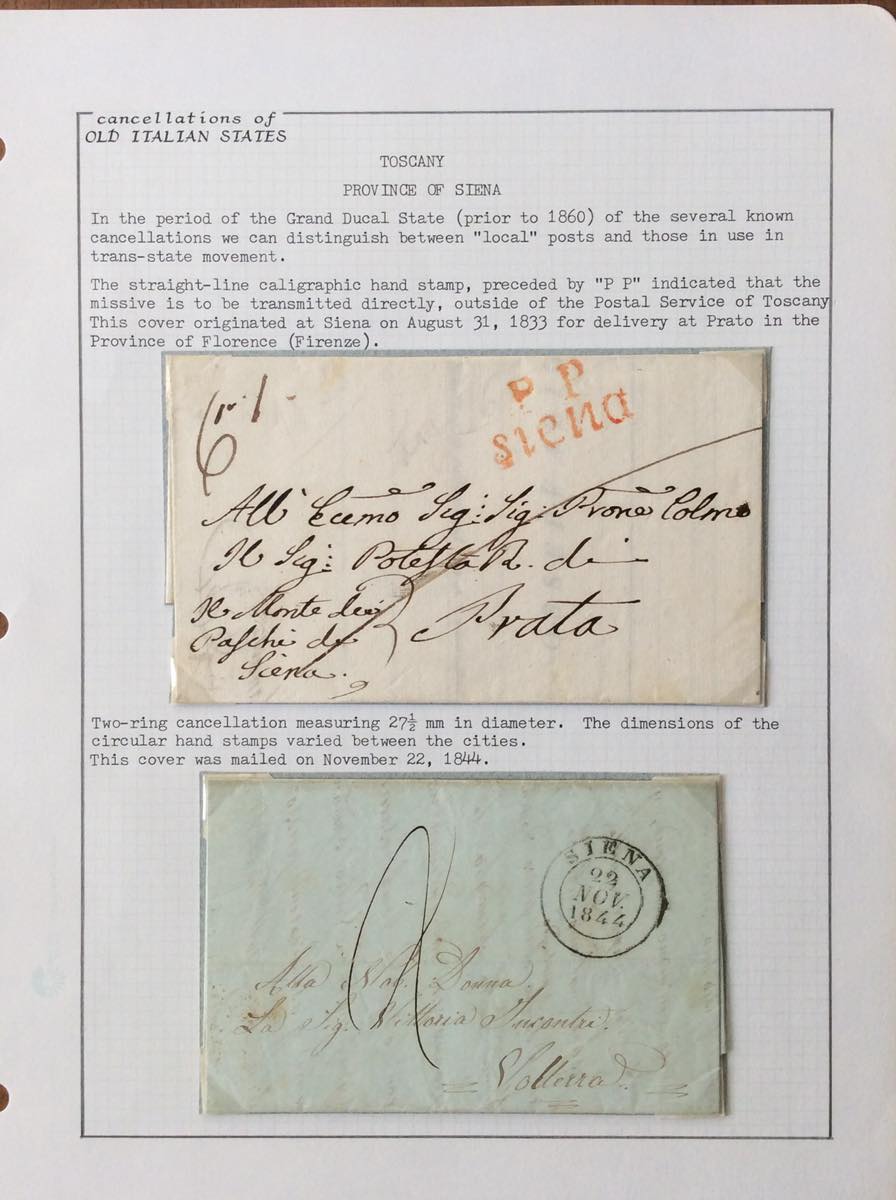 cancellations of
OLD ITALIAN STATES
TOSCANY
PROVINCE OF SIENA
In the period of the Grand Ducal State (prior to 1860) of the several known
cancellations we can distinguish between "local" posts and those in use in
trans-state movement.
The straight-line caligraphic hand stamp, preceded by "P P" indicated that the
missive is to be transmitted directly, outside of the Postal Service of Toscany
This cover originated at Siena on August 31, 1833 for delivery at Prato in the
Province of Florence (Firenze).
P P
siena
All' Sig: Sig: Prone Colmo
Il Sig: Potestà R. di
Il Monte dei
Prata
Paschi di
Siena.
Two-ring cancellation measuring 27½ mm in diameter. The dimensions of the
circular hand stamps varied between the cities.
This cover was mailed on November 22, 1844.
SIENA
22
NOV.
1844
Alla Nob. Donna
La Sig. Vittoria Incontri.
Volterra